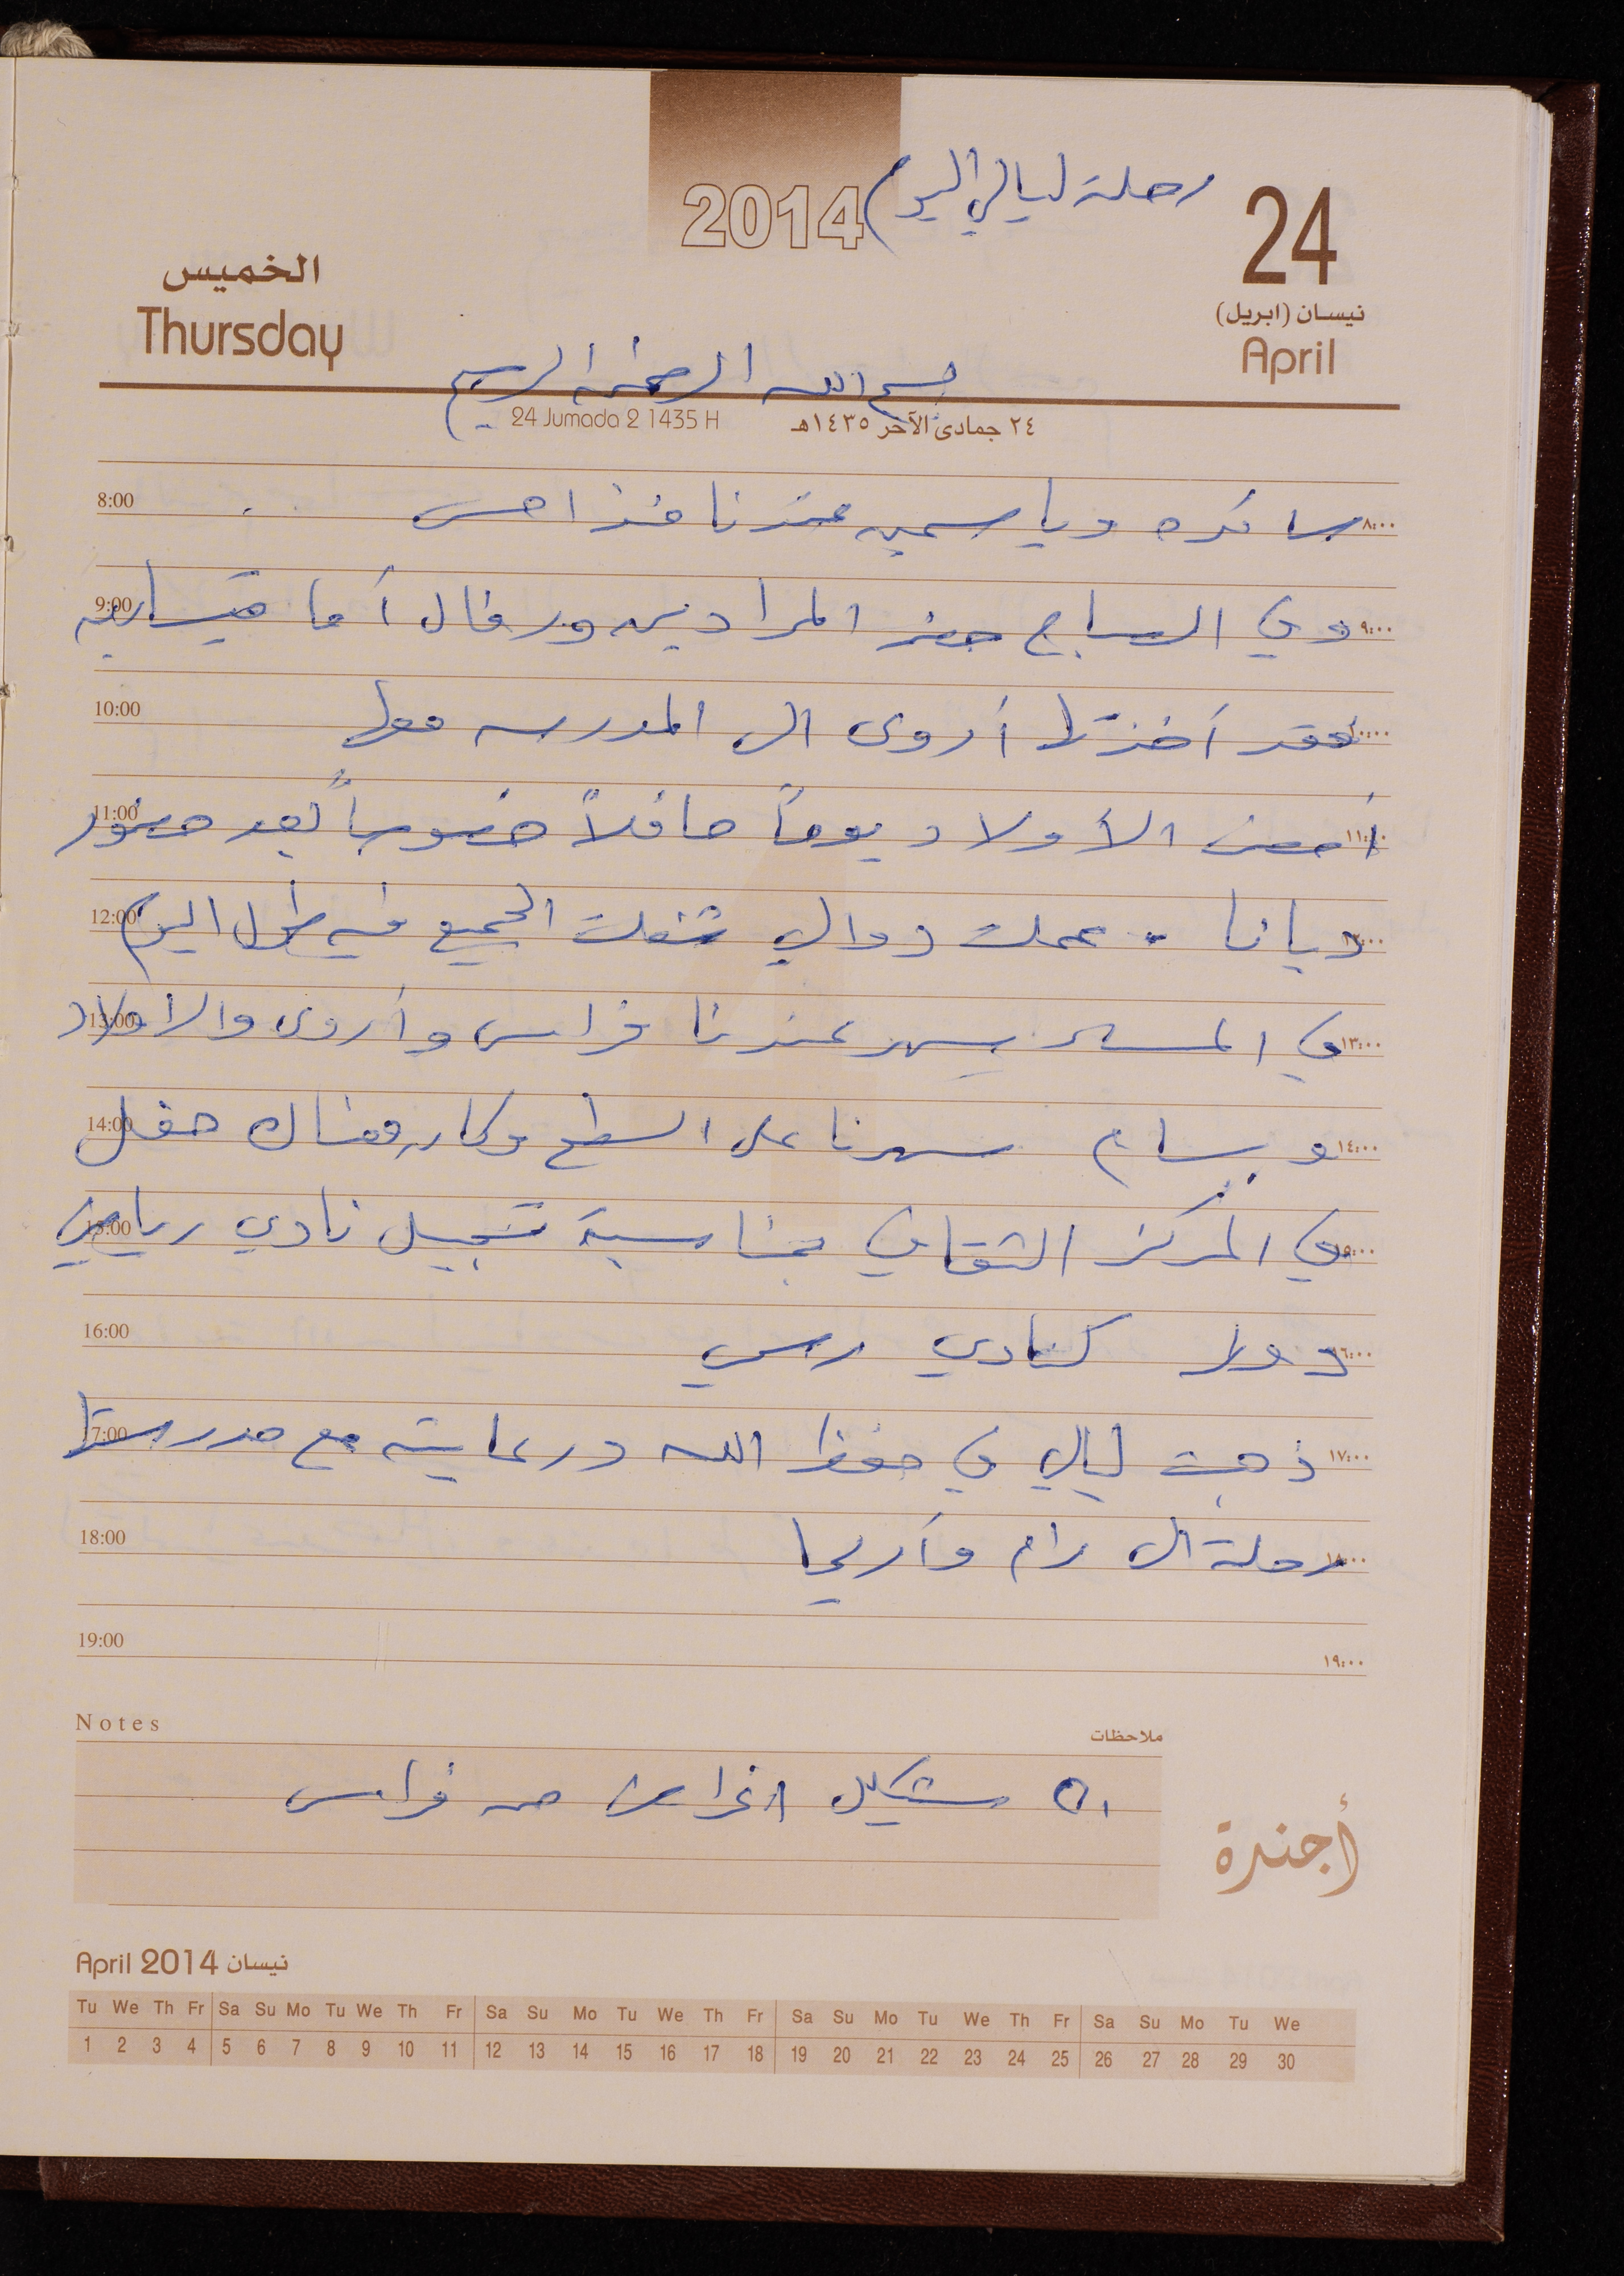 رحلة ليالي اليوم
2014
24
نيسان (ابريل)
April
الخميس
Thursday
بسم الله الرحمن الرحيم
24 Jumada 2 1435 H
٢٤ جمادى الآخر ١٤٣٥هـ
8:00 سائده وياسمين عندنا منذ امس ٨:٠٠
9:00 وفي الصباح حضر المرادين ورفال أما ٩:٠٠
10:00 فقد أخذتها أروى الى المدرسه معها ١٠:٠٠
11:00 أمضى الأولاد يوماً حافلاً خصوصاً بعد حضور ١١:٠٠
12:00 ديانا . عملت دوالي شغلت الجميع فيه طول اليوم ١٢:٠٠
13:00 في المساء يسهر عندنا فراس وأروى والاولاد ١٣:٠٠
14:00 وبسام سهرنا على السطح وكان هناك حفل ١٤:٠٠
15:00 في المركز الثقافي بمناسبة تسجيل نادي رياضي ١٥:٠٠
16:00 كنادي رسمي ١٦:٠٠
17:00 ذهبت ليالي في حفظ الله ورعايته مع مدرستها ١٧:٠٠
18:00 رحلة الى رام وأريحا ١٨:٠٠
19:00 ١٩:٠٠
Notes ملاحظات
٥٠ شيكل اغراض من فراس
أجندة
April 2014 نيسان
Tu We Th Fr Sa Su Mo Tu We Th Fr Sa Su Mo Tu We Th Fr Sa Su Mo Tu We Th Fr Sa Su Mo Tu We
1 2 3 4 5 6 7 8 9 10 11 12 13 14 15 16 17 18 19 20 21 22 23 24 25 26 27 28 29 30